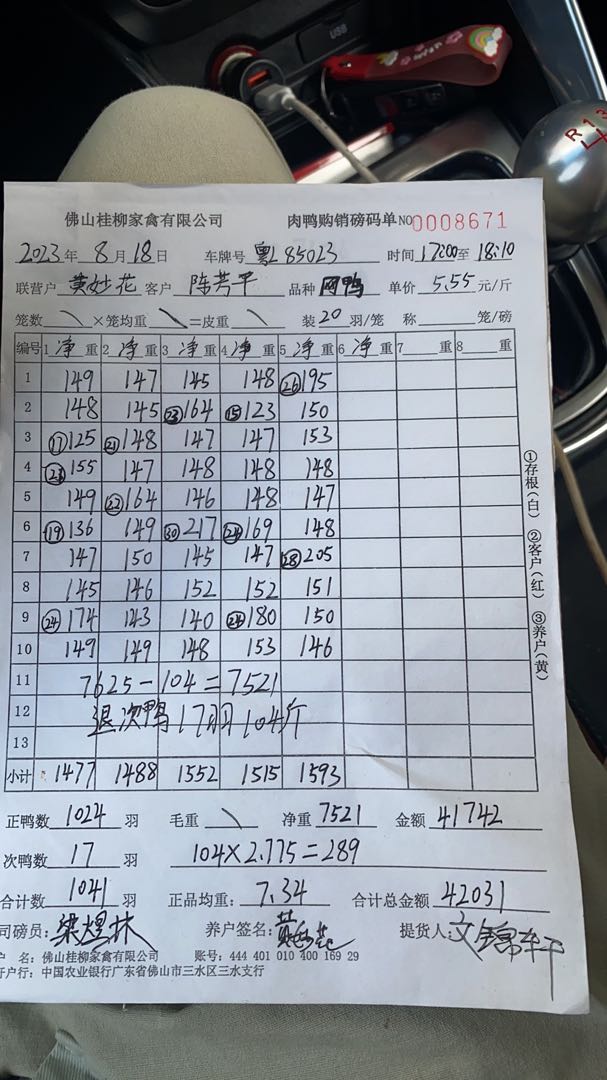 USB
R 1 3
佛山桂柳家禽有限公司 肉鸭购销磅码单 NO 0008671
2023年 8月18日 车牌号 粤L85023 时间 17:00至 18:10
联营户 黄妙花 客户 陈芳平 品种 网鸭 单价 5.55 元/斤
笼数 \ ×笼均重 \ =皮重 \ 装20羽/笼 称 笼/磅
编号 1净重 2净重 3净重 4净重 5净重 6净重 7 重 8 重
1 149 147 145 148 ㉖195
2 148 145 ㉓164 ⑮123 150
3 ⑰125 ㉑148 147 147 153
4 155 147 148 148 148
5 149 ㉒164 146 148 147
6 ⑲136 149 ㉚217 ㉔169 148
7 147 150 145 147 ㉘205
8 145 146 152 152 151
9 ㉔174 143 140 ㉔180 150
10 149 149 148 153 146
11 7625-104=7521
12 退次鸭17羽104斤
13
小计 1477 1488 1552 1515 1593
①存根(白) ②客户(红) ③养户(黄)
正鸭数 1024 羽 毛重 \ 净重 7521 金额 41742
次鸭数 17 羽 104×2.775=289
合计数 1041 羽 正品均重: 7.34 合计总金额 42031
司磅员: 梁煜林 养户签名: 黄妙花 提货人:
户 名: 佛山桂柳家禽有限公司 账号: 444 401 010 400 169 29
开户行: 中国农业银行广东省佛山市三水区三水支行